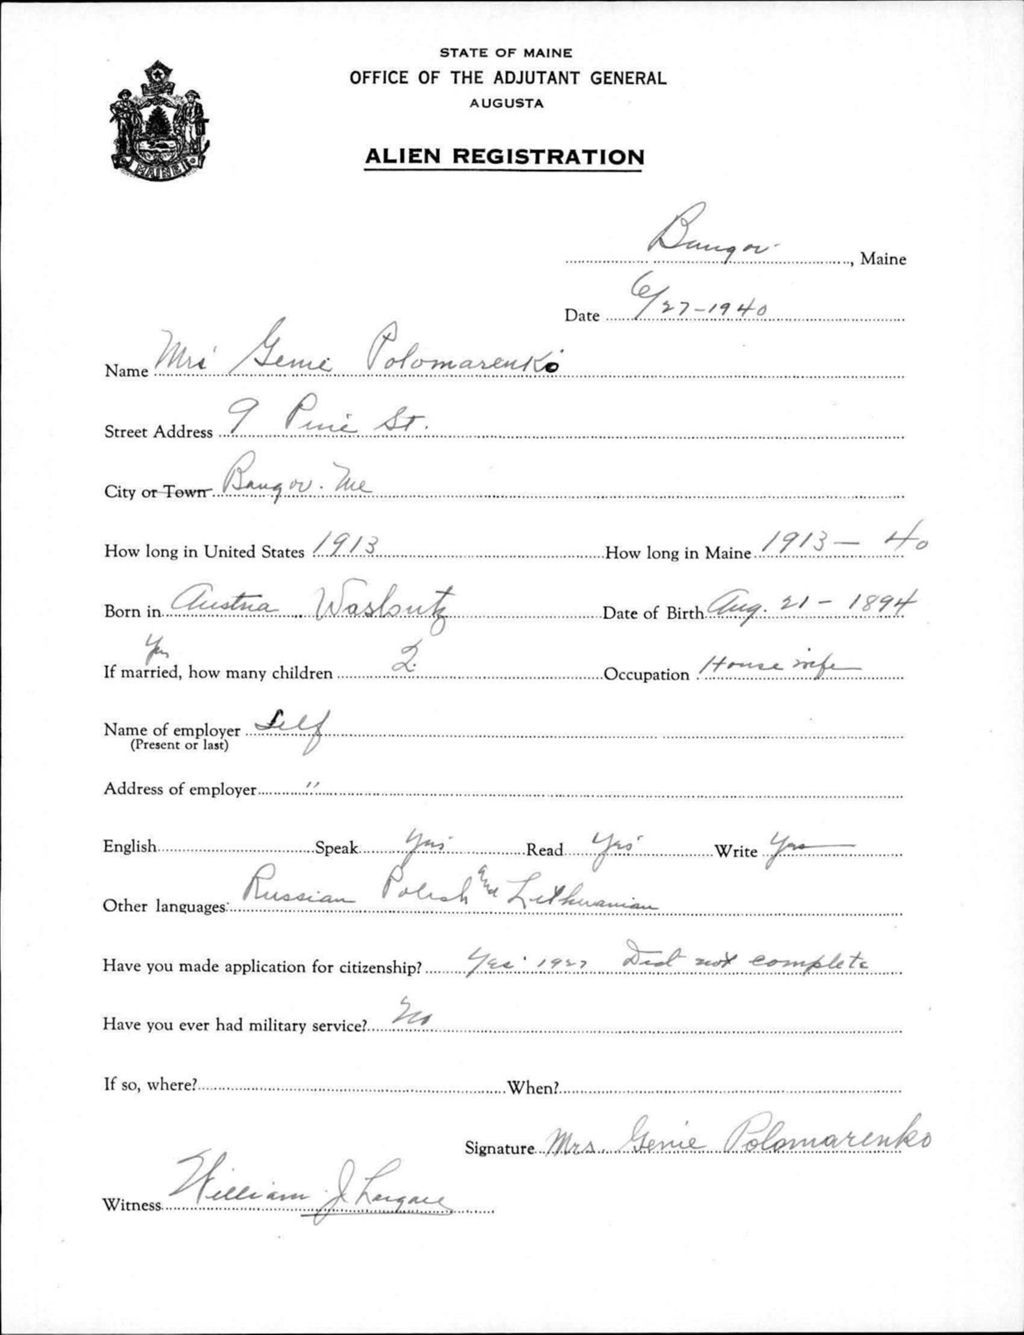 STATE OF MAINE
OFFICE OF THE ADJUTANT GENERAL
AUGUSTA
ALIEN REGISTRATION
MAINE
Bangor, Maine
Date 6/27-1940
Name Mrs Genie Polomarenko
Street Address 9 Pine St.
City or Town Bangor. Me
How long in United States 1913 How long in Maine 1913 - 40
Born in Austria Date of Birth Aug. 21 - 1894
Yes
If married, how many children 2 Occupation Housewife
Name of employer Self
(Present or last)
Address of employer "
English Speak Yes Read Yes Write Yes
Other languages Russian Polish and Lithuanian
Have you made application for citizenship? Yes 1927 Did not complete
Have you ever had military service? No
If so, where? When?
Signature Mrs. Genie Polomarenko
Witness William J